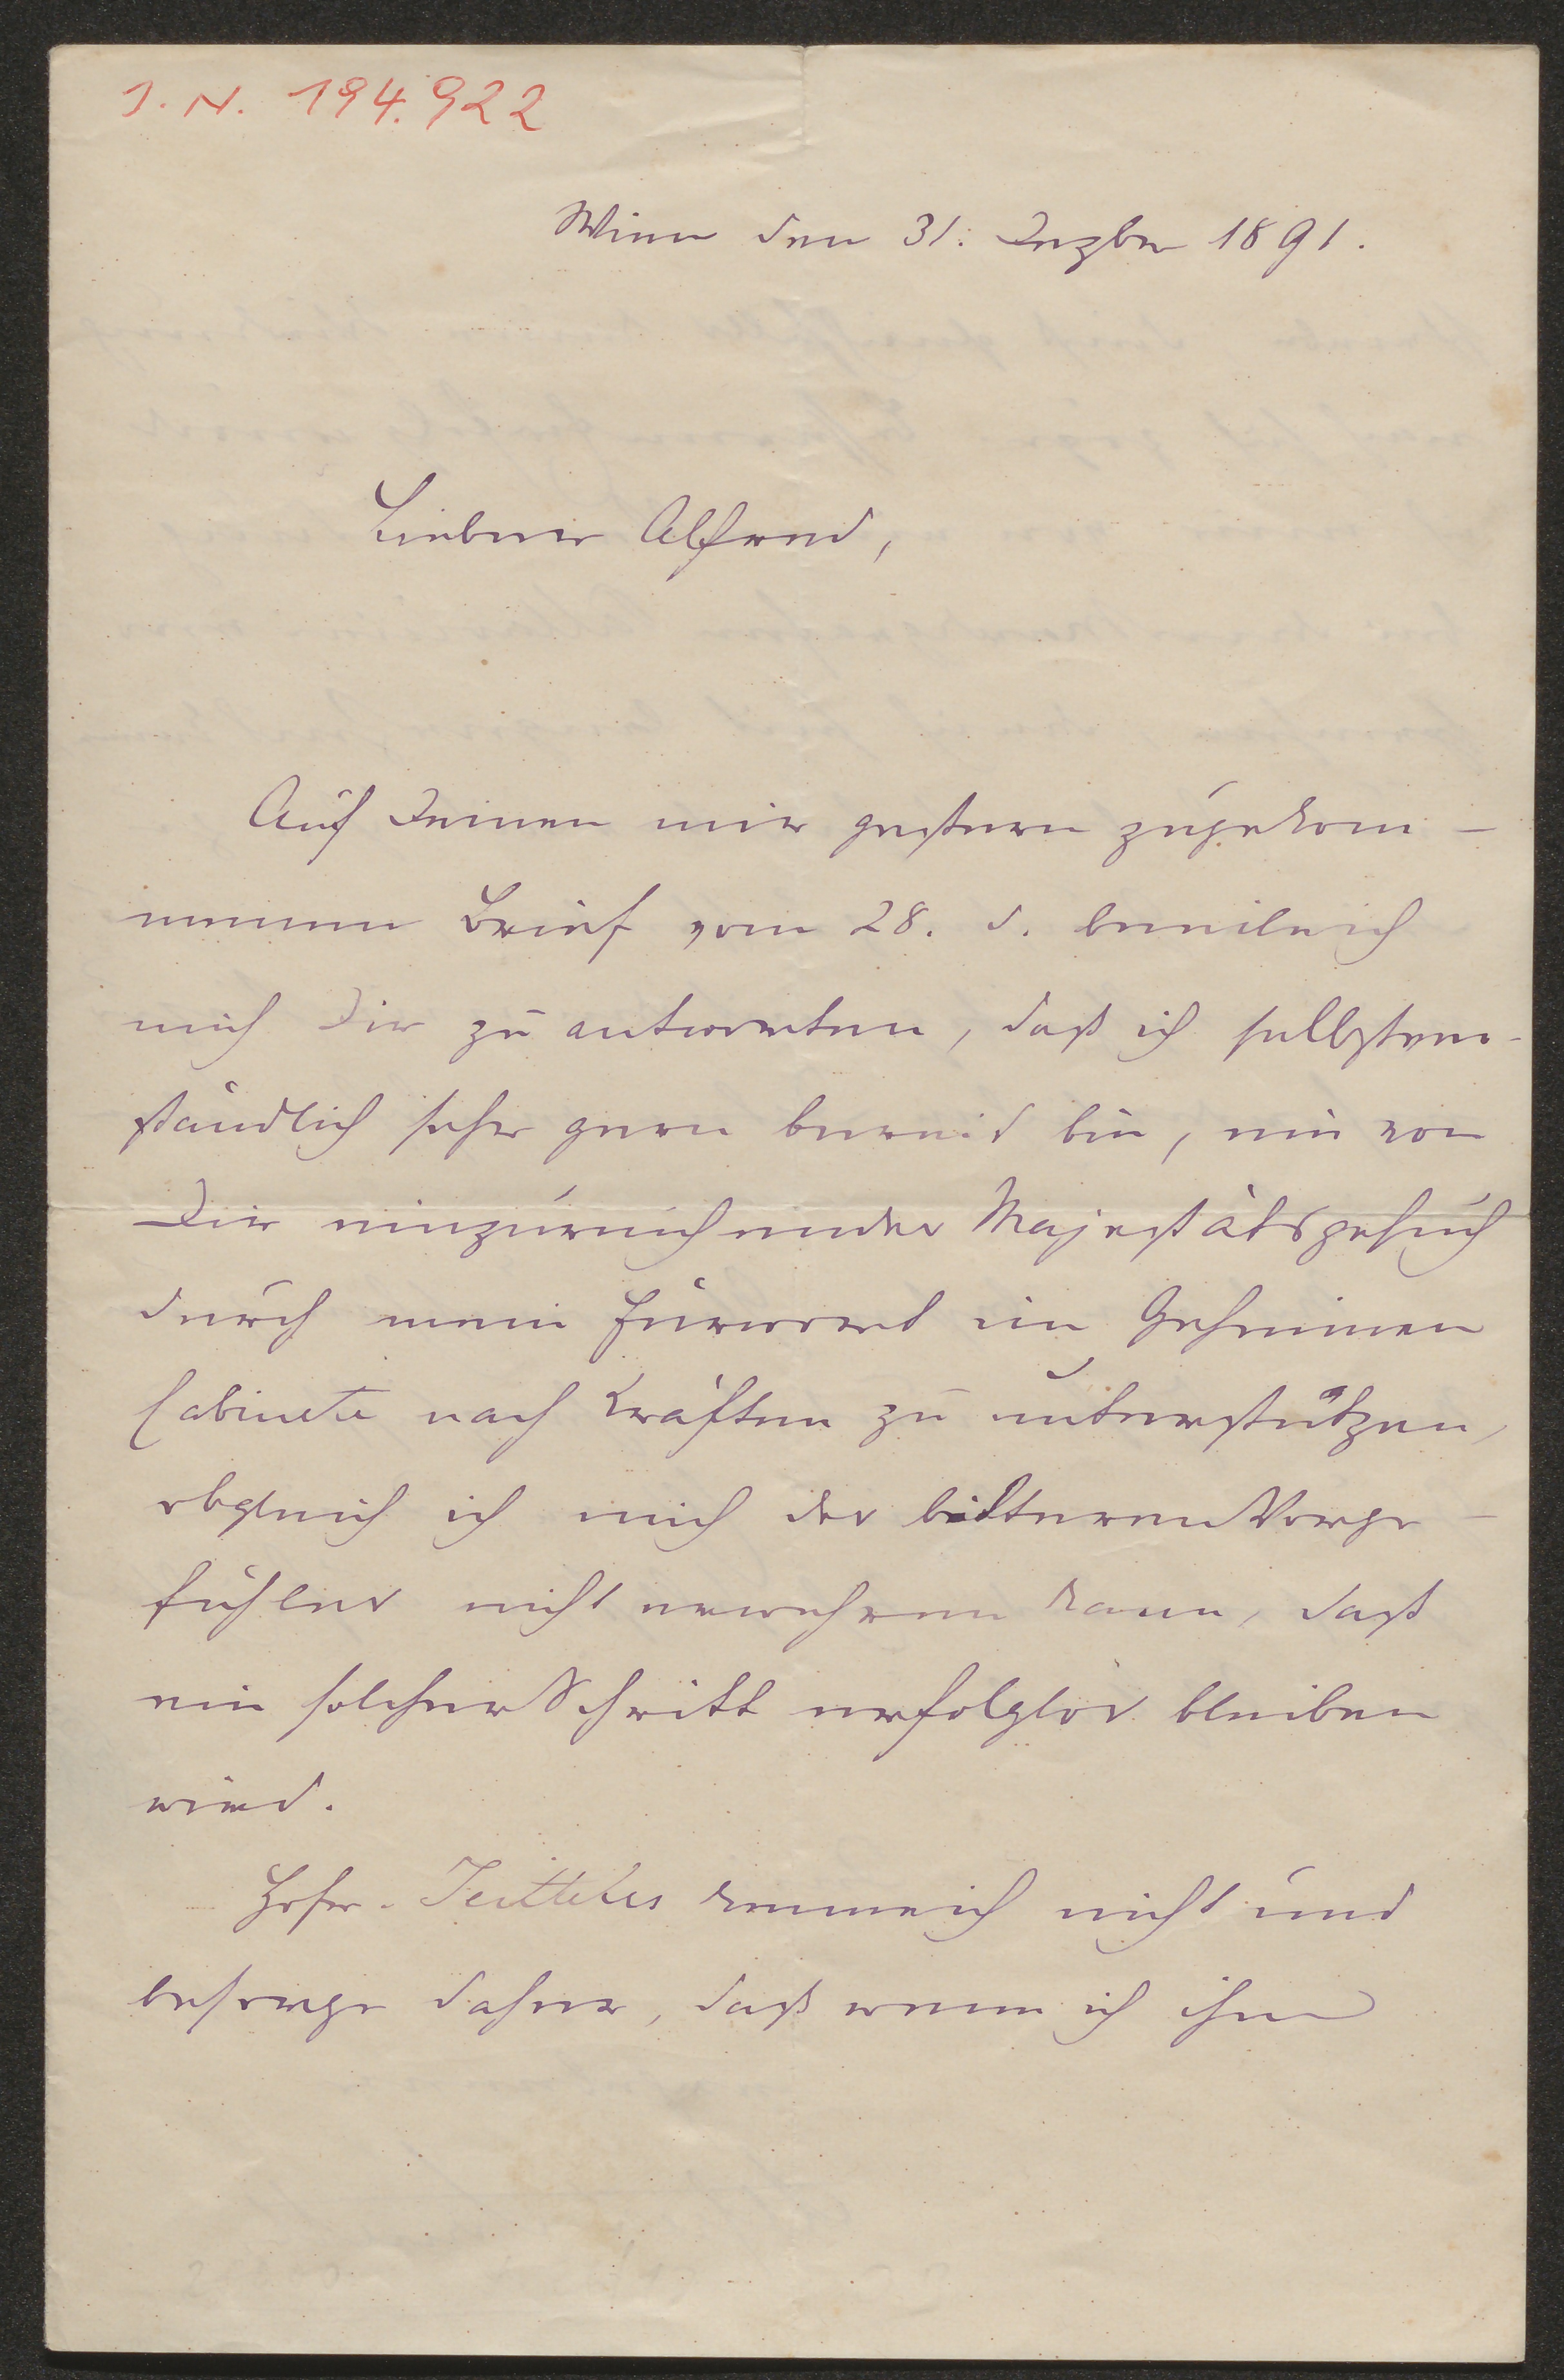 I. N. 194.922
Wien den 31. Dezber 1891.
Lieber Alfred,
Auf Deinen mir gestern zugekom-
menen Brief vom 28. d. beeile ich
mich Dir zu antworten, daß ich selbstver-
ständlich sehr gern bereit bin, ein von
Dir einzureichendes Majestätsgesuch
durch mein Fürwort im Geheimen
Cabinete nach Kräften zu unterstützen,
obgleich ich mich des bitteren Vorge-
fühles nicht erwehren kann, daß
ein solcher Schritt erfolglos bleiben
wird.
Hofr. Teitteles kenne ich nicht und
besorge daher, daß wenn ich ihm